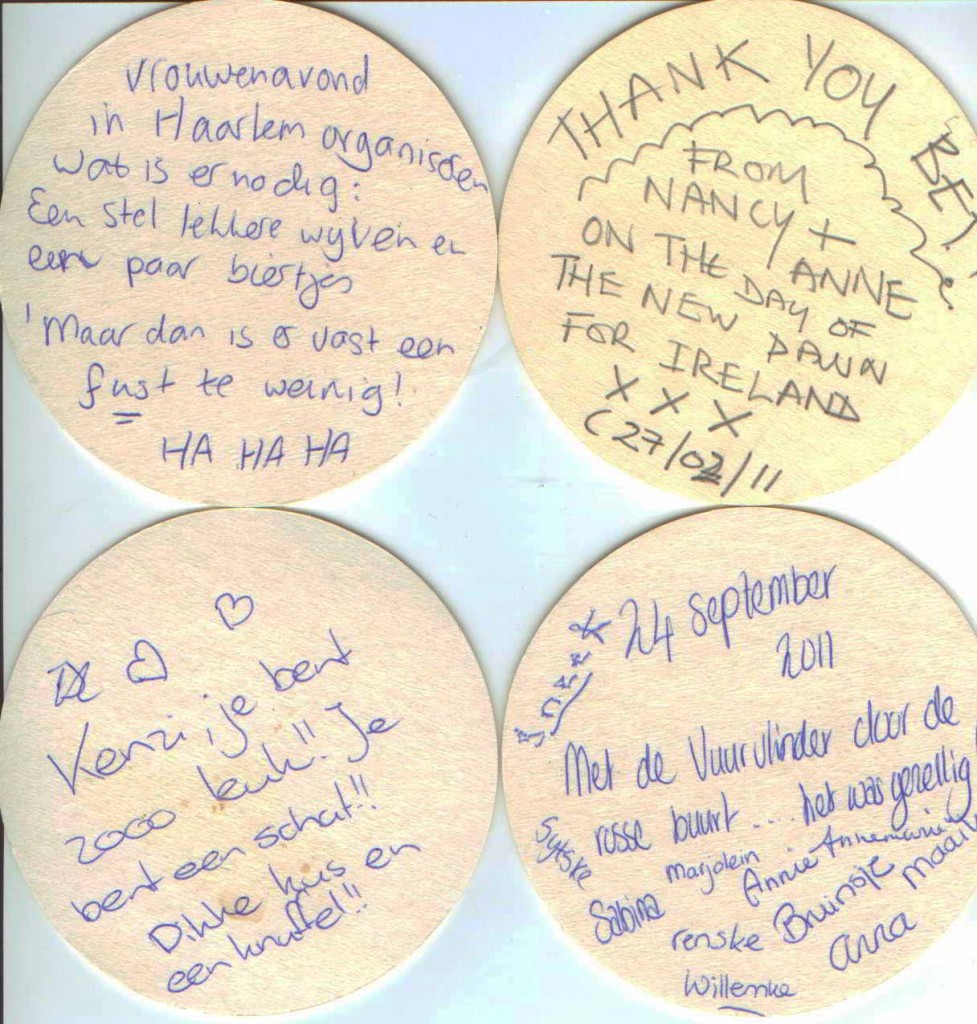 Vrouwenavond
in Haarlem organiseren
wat is er nodig:
Een stel lekkere wijven en
een paar biertjes
'Maar dan is er vast een
fust te weinig!
HA HA HA
THANK YOU BET!
FROM
NANCY + ANNE
ON THE DAY OF
THE NEW DAWN
FOR IRELAND
X X X
(27/02/11
Kenzi je bent
zooo leuk!! Je
bent een schat!!
Dikke kus en
een knuffel!!
24 september
2011
Met de Vuurvlinder door de
rosse buurt .... het was gezellig
Sytske
Marjolein
Annie
Annemarie
Sabina
renske
Bruinsje
anna
Willemke